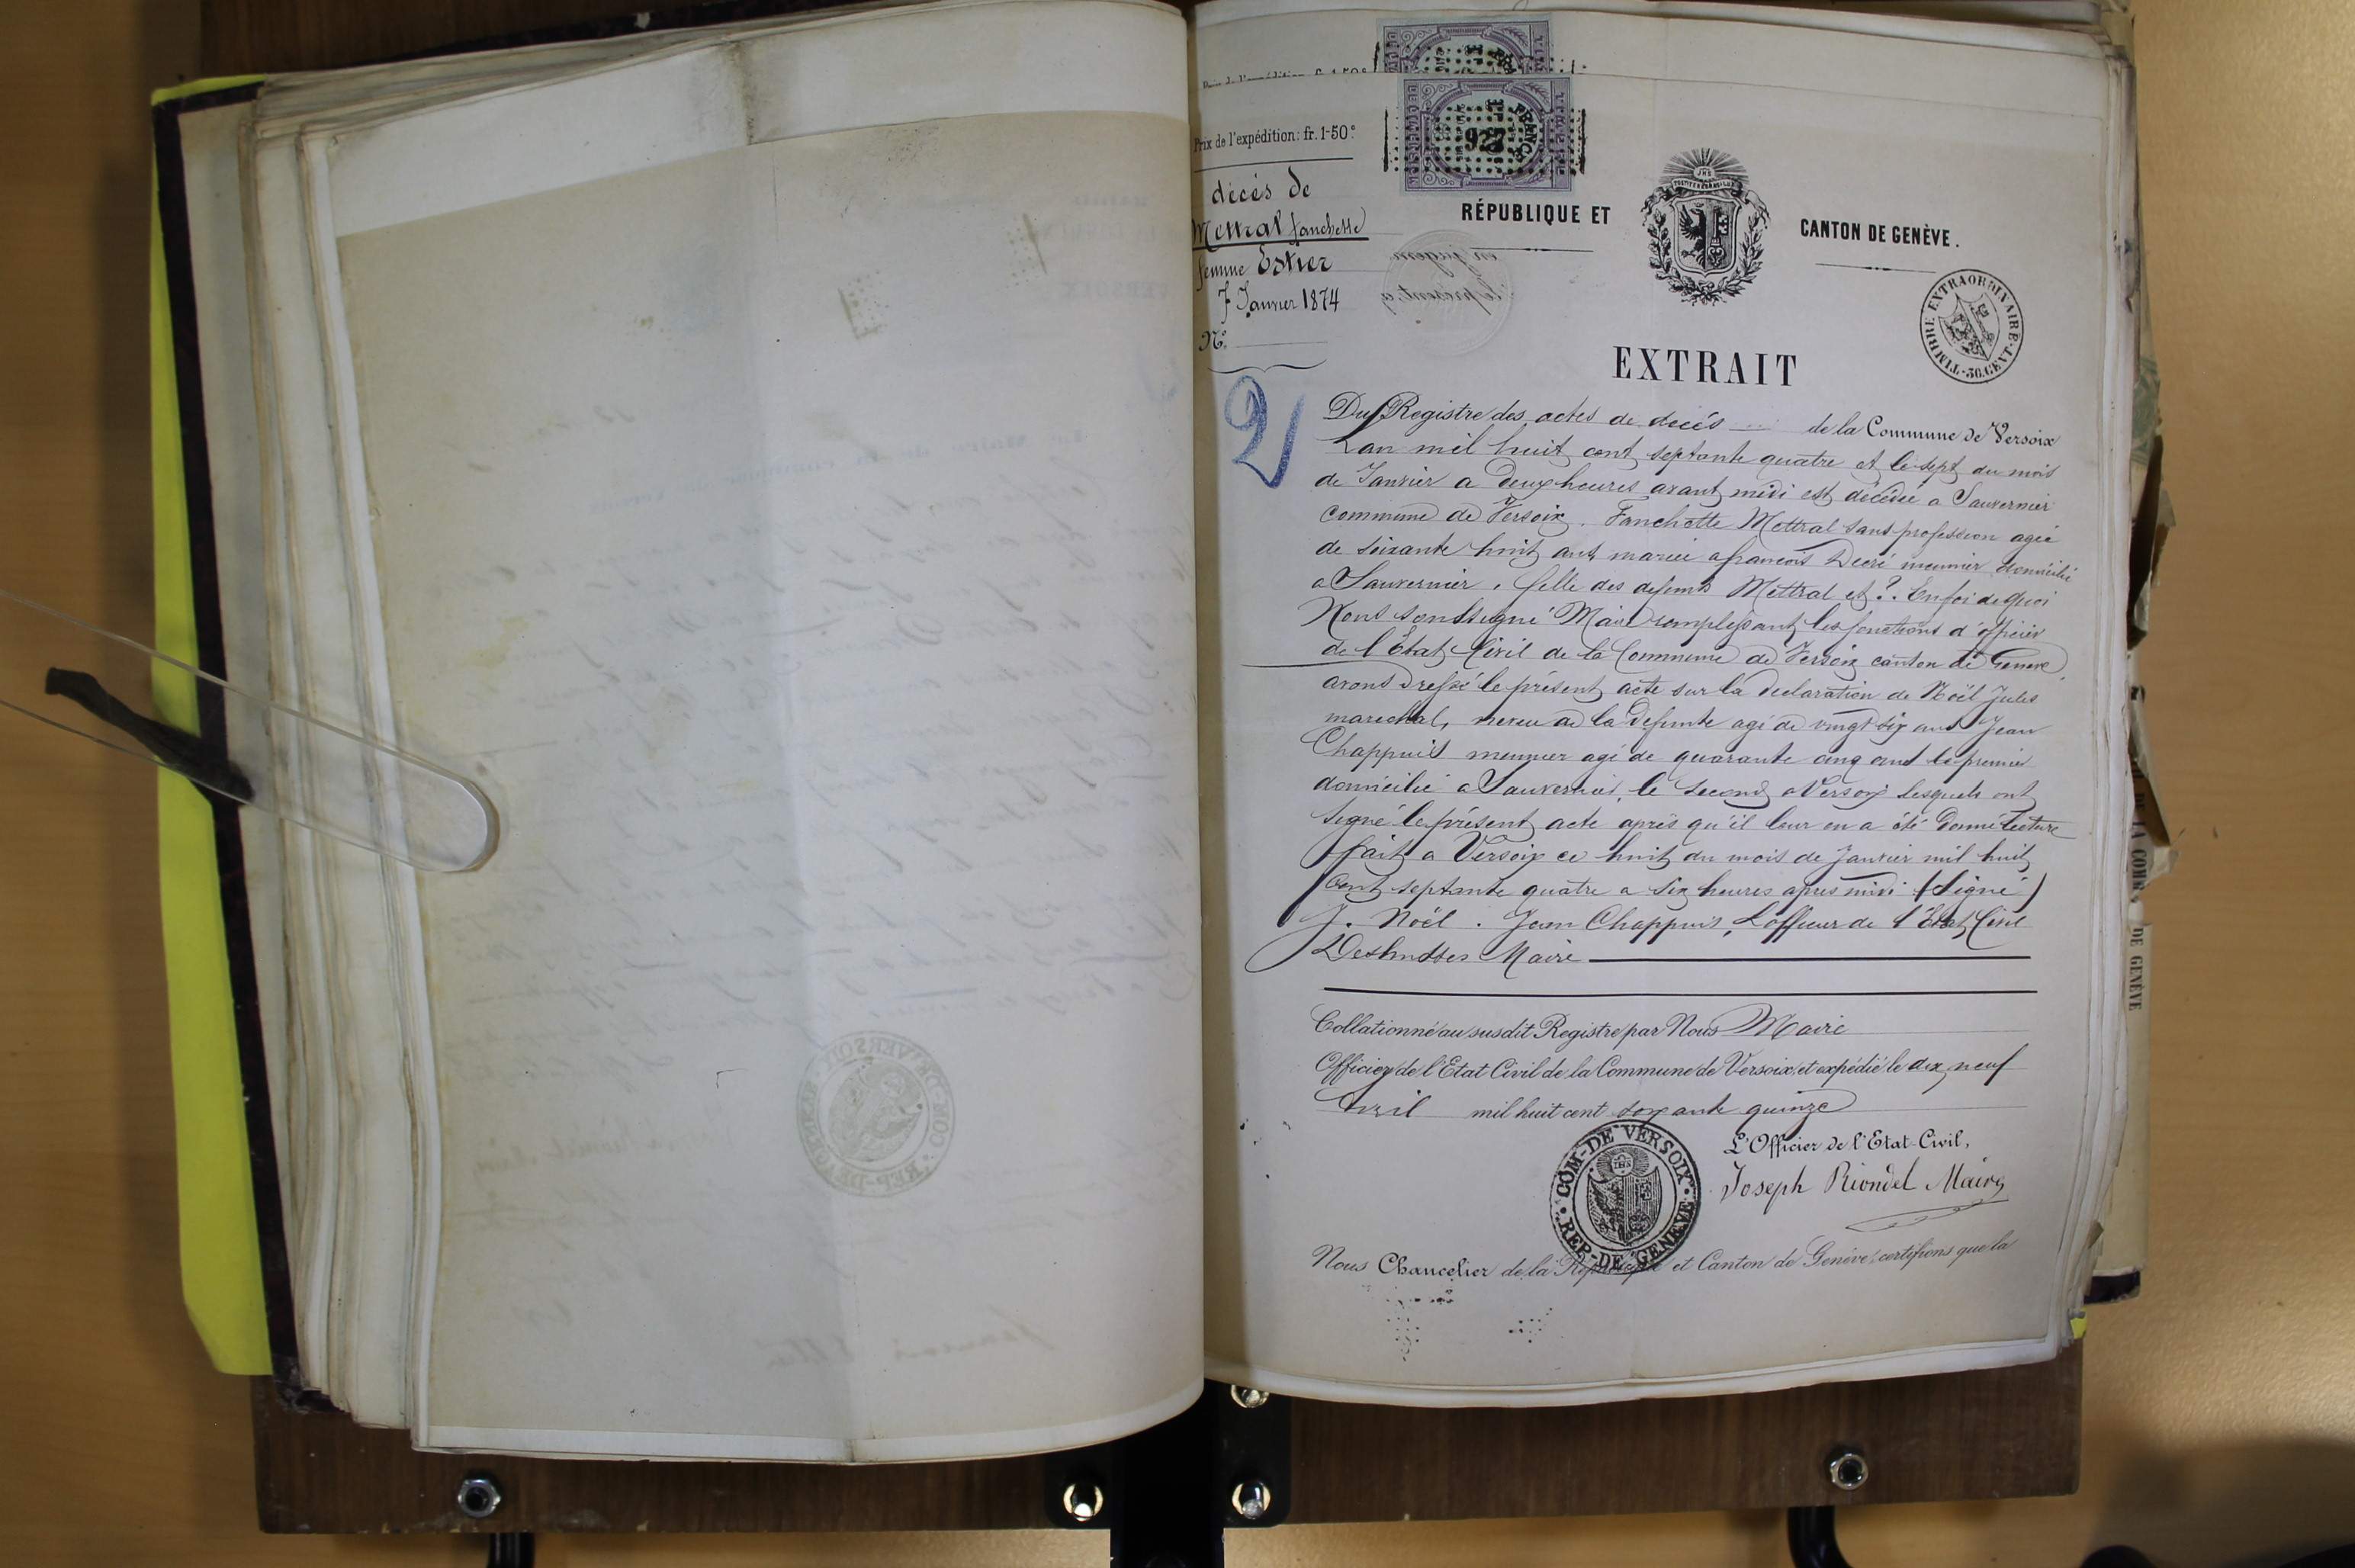 Prix de l'expédition: fr. 1-50c.
décès de
Mettral fanchette
femme Estier
7 Janvier 1874
No.
927
FRANCE
RÉPUBLIQUE ET
CANTON DE GENÈVE.
TIMBRE EXTRAORDINAIRE 30. CENT.
2
EXTRAIT
Du Registre des actes de décès de la Commune de Versoix
L'an mil huit cent septante quatre et le sept du mois
de Janvier a deux heures avant midi est décédée a Sauvernier
commune de Versoix. Fanchette Mettral sans profession agée
de soixante huit ans mariée a francois meunier domicilié
a Sauvernier, fille des defunts Mettral et ?. En foi de quoi
Nous soussigné Maire remplissant les fonctions d'officier
de l'État Civil de la Commune de Versoix canton de Genève
avons dressé le présent acte sur la declaration de Noël Jules
marechal, neveu de la defunte agé de vingt six ans Jean
Chappuis meunier agé de quarante cinq ans le premier
domicilié a Sauvernier, le second a Versoix lesquels ont
signé le présent acte après qu'il leur en a été donné lecture
fait a Versoix ce huit du mois de Janvier mil huit
cent septante quatre a six heures apres midi (signé)
J. Noël. Jean Chappuis, L'officier de l'Etat Civil
Deshusses Maire
Collationné au susdit Registre par Nous Maire
Officier de l'Etat Civil de la Commune de Versoix et expédié le dix neuf
Avril mil huit cent soixante quinze
L'Officier de l'Etat-Civil,
Joseph Riondel Maire
COM-DE VERSOIX REP-DE GENÈVE
Nous Chancelier de la République et Canton de Genève, certifions que la
DE GENÈVE